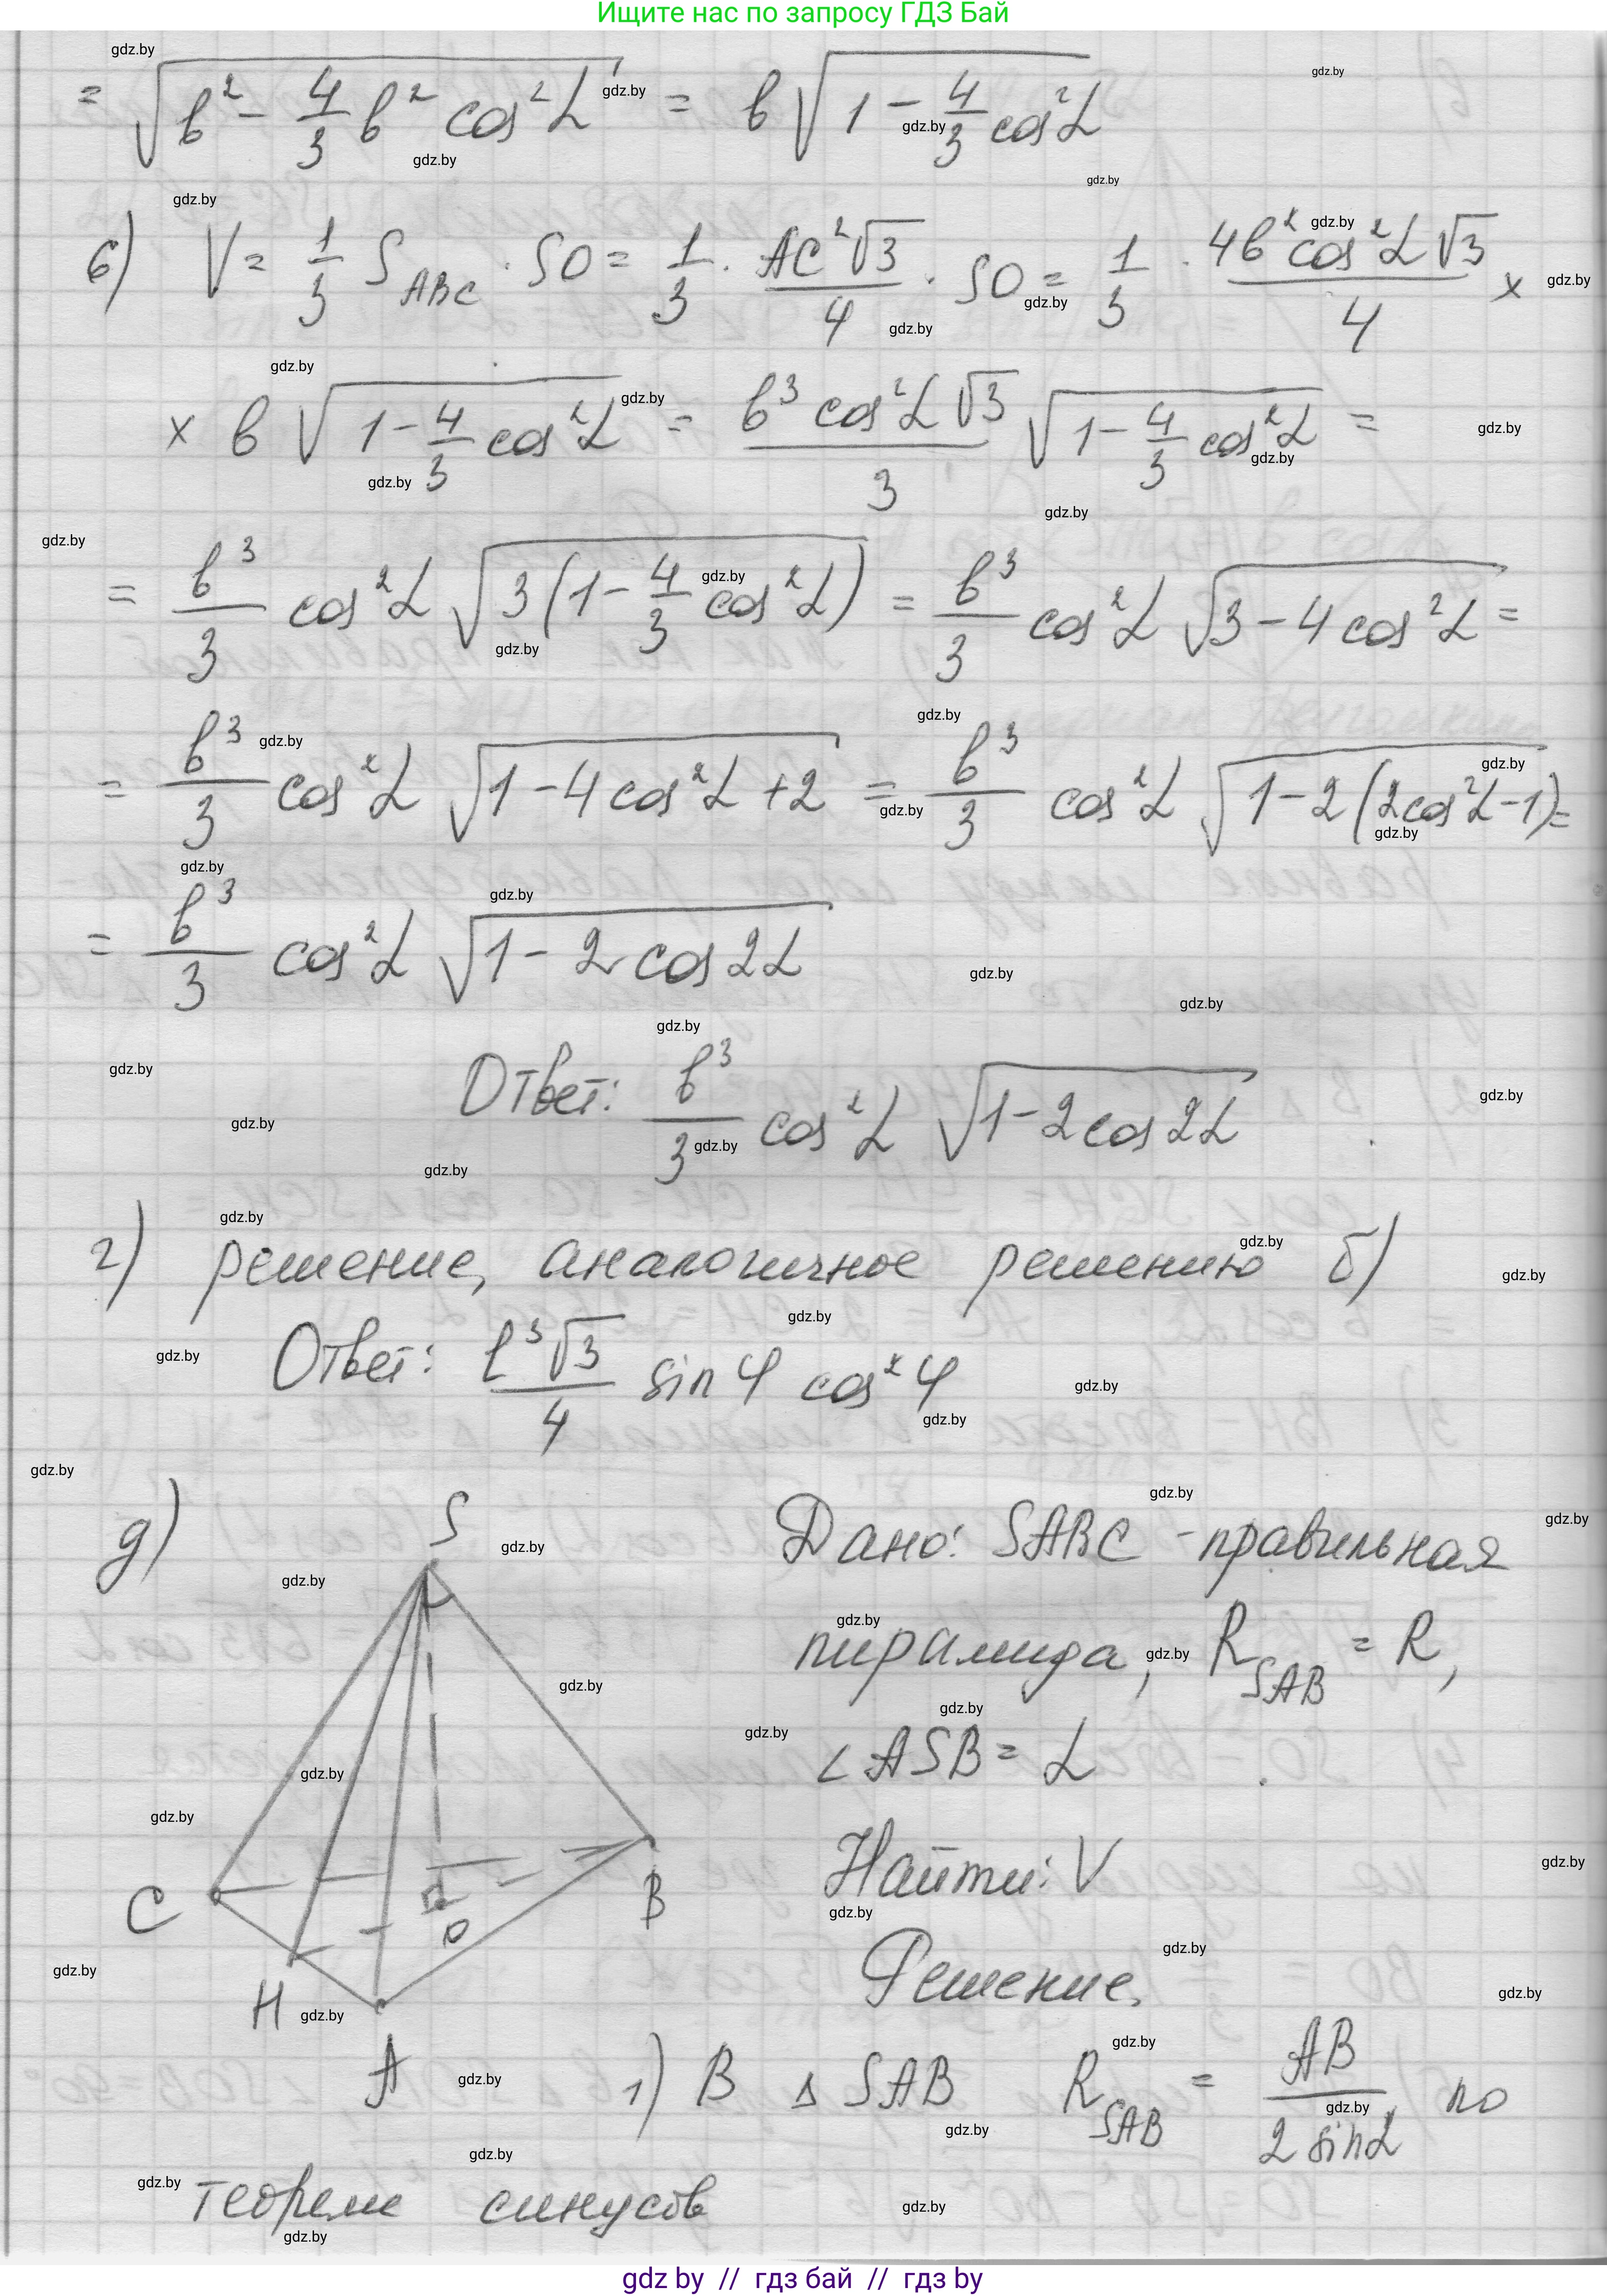 Ищите нас по запросу ГДЗ Бай
= √(b² - 4/3 b² cos²α) = b √(1 - 4/3 cos²α)
6) V = 1/3 S_ABC · SO = 1/3 · AC²√3/4 · SO = 1/3 · 4b² cos²α √3/4 ×
× b √(1 - 4/3 cos²α) = b³ cos²α √3/3 √(1 - 4/3 cos²α) =
= b³/3 cos²α √(3(1 - 4/3 cos²α)) = b³/3 cos²α √(3 - 4 cos²α) =
= b³/3 cos²α √(1 - 4 cos²α + 2) = b³/3 cos²α √(1 - 2(2cos²α - 1)) =
= b³/3 cos²α √(1 - 2 cos 2α)
Ответ: b³/3 cos²α √(1 - 2 cos 2α)
г) решение, аналогичное решению б)
Ответ: l³√3/4 sin φ cos²φ
д)
S
C
H
A
B
O
Дано: SABC - правильная
пирамида, R_SAB = R,
∠ASB = α
Найти: V
Решение.
1) В Δ SAB R_SAB = AB/(2 sin α) по
теореме синусов
gdz by // гдз бай // гдз by